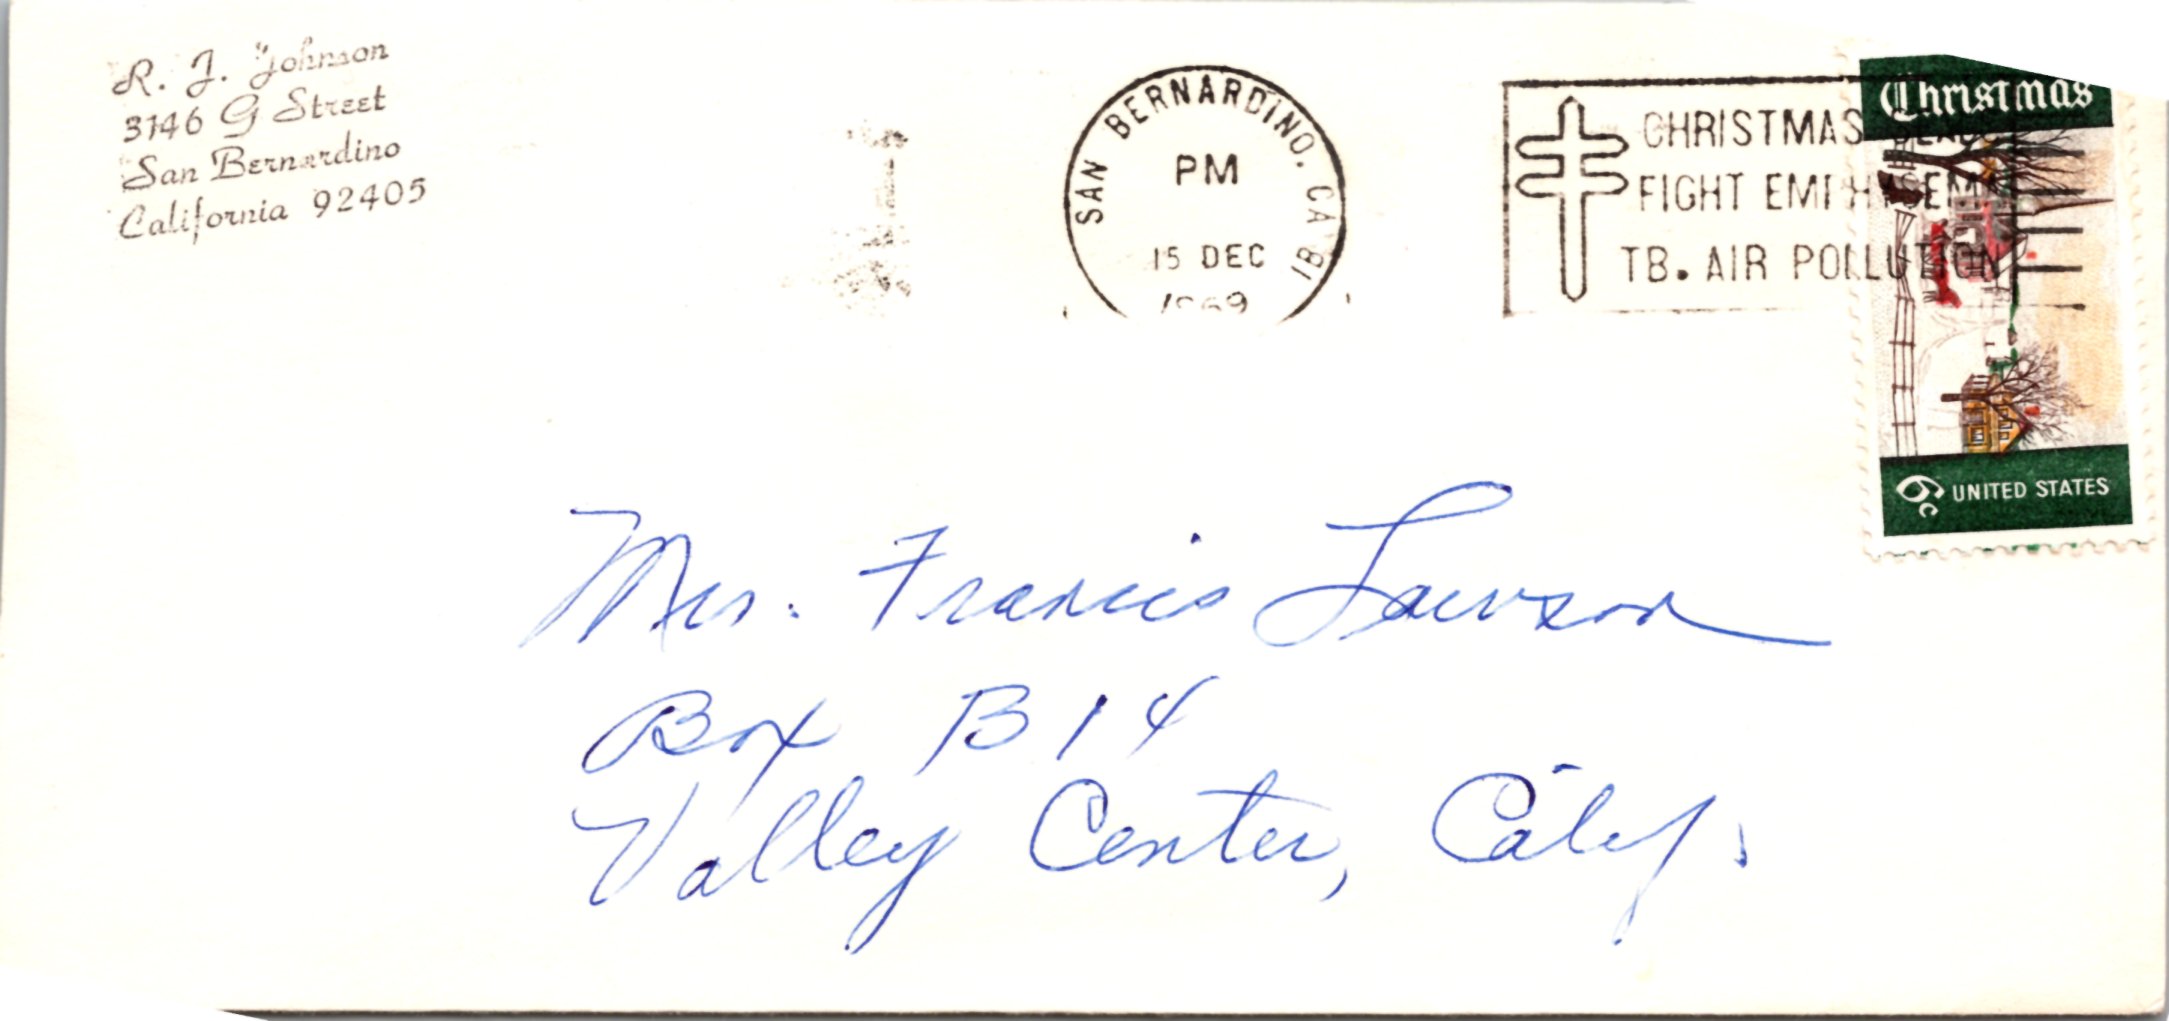 R. J. Johnson
3146 G Street
San Bernardino
California 92405
SAN BERNARDINO, CA
PM
15 DEC
1969
CHRISTMAS
FIGHT EMPHYSEMA
TB. AIR POLLUTION
Christmas
6c UNITED STATES
Mrs. Francis Lawson
Box B14
Valley Center, Calif.